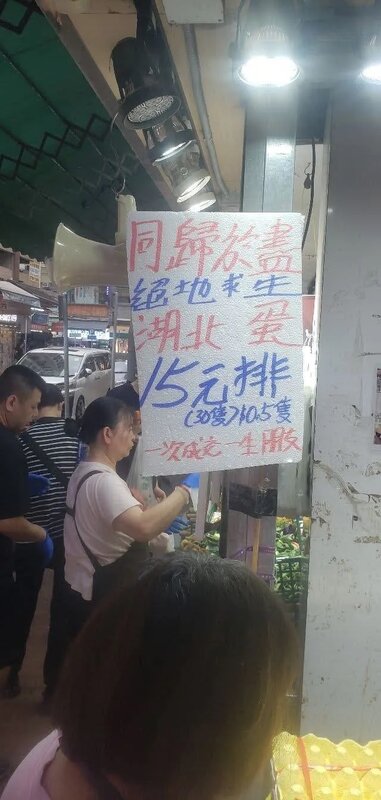 同歸於盡
絕地求生
湖北 蛋
15元排
(30隻)$10.5隻
一次成交 一生朋友